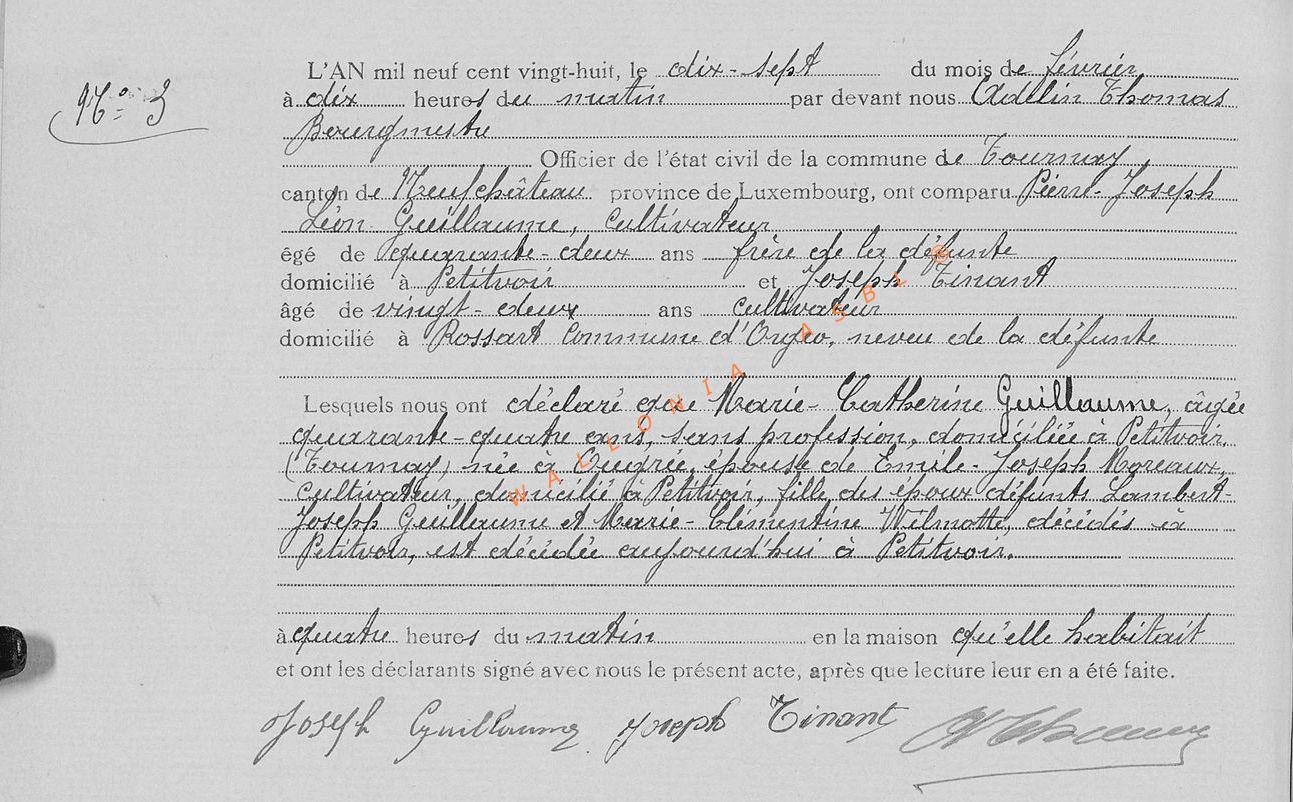 N° 3
L'AN mil neuf cent vingt-huit, le dix-sept du mois de février
à dix heures du matin par devant nous Adelin Thomas
Bourgmestre
Officier de l'état civil de la commune de Tournay,
canton de Neufchâteau province de Luxembourg, ont comparu Pierre-Joseph
Léon Guillaume, cultivateur
êgé de quarante-deux ans frère de la défunte
domicilié à Petitvoir et Joseph Tinant
âgé de vingt-deux ans cultivateur
domicilié à Rossart Commune d'Orgeo, neveu de la défunte
Lesquels nous ont déclaré que Marie-Catherine Guillaume, âgée
quarante-quatre ans, sans profession, domiciliée à Petitvoir
(Tournay) née à Ougrée, épouse de Emile-Joseph Moreaux,
cultivateur, domicilié à Petitvoir, fille des époux défunts Lambert-
Joseph Guillaume et Marie-Clémentine Wilmotte, décédés à
Petitvoir, est décédée aujourd'hui à Petitvoir.
à quatre heures du matin en la maison qu'elle habitait
et ont les déclarants signé avec nous le présent acte, après que lecture leur en a été faite.
Joseph Guillaume Joseph Tinant AThomas
WALLONIA ASBL ©